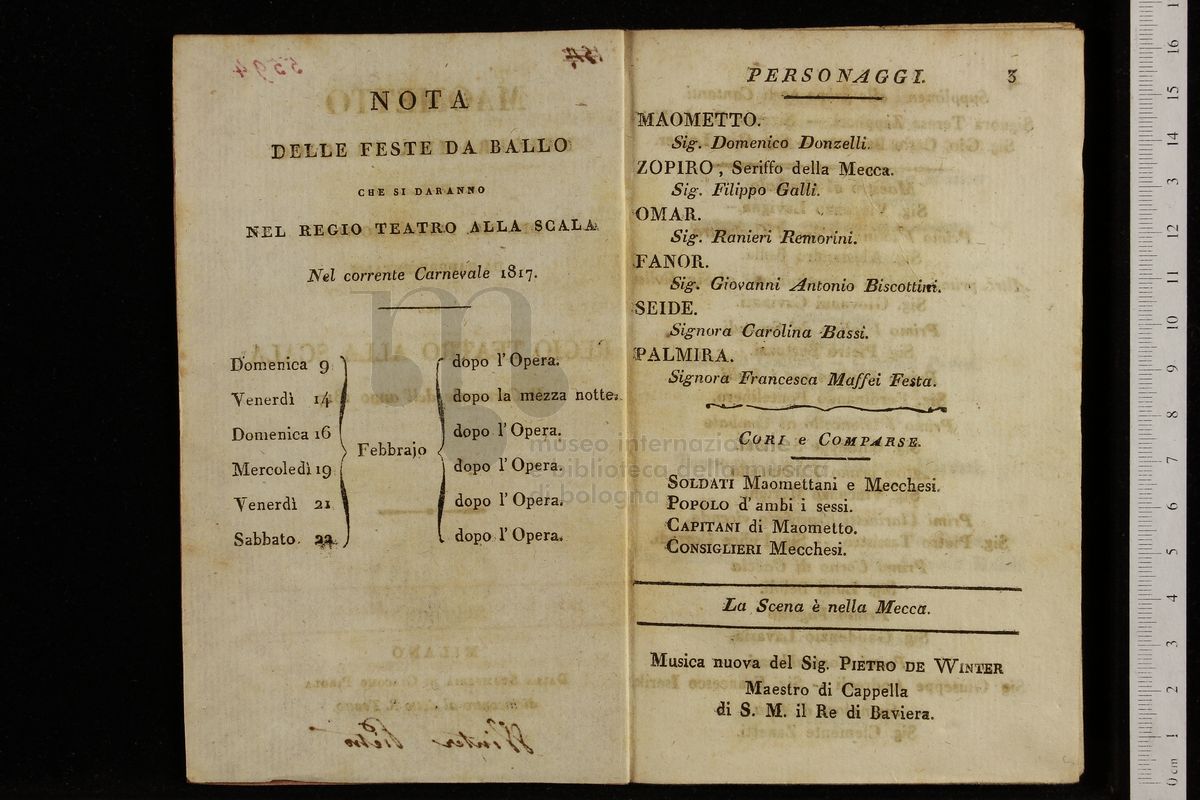 NOTA
DELLE FESTE DA BALLO
CHE SI DARANNO
NEL REGIO TEATRO ALLA SCALA
Nel corrente Carnevale 1817.
Domenica 9 dopo l'Opera.
Venerdì 14 dopo la mezza notte.
Domenica 16 dopo l'Opera.
Febbrajo
Mercoledì 19 dopo l'Opera.
Venerdì 21 dopo l'Opera.
Sabbato 22 dopo l'Opera.
PERSONAGGI. 3
MAOMETTO.
Sig. Domenico Donzelli.
ZOPIRO, Seriffo della Mecca.
Sig. Filippo Galli.
OMAR.
Sig. Ranieri Remorini.
FANOR.
Sig. Giovanni Antonio Biscottini.
SEIDE.
Signora Carolina Bassi.
PALMIRA.
Signora Francesca Maffei Festa.
CORI e COMPARSE.
SOLDATI Maomettani e Mecchesi.
POPOLO d'ambi i sessi.
CAPITANI di Maometto.
CONSIGLIERI Mecchesi.
La Scena è nella Mecca.
Musica nuova del Sig. PIETRO DE WINTER
Maestro di Cappella
di S. M. il Re di Baviera.
museo internazionale
e biblioteca della musica
di bologna
0 cm 1 2 3 4 5 6 7 8 9 10 11 12 13 14 15 16